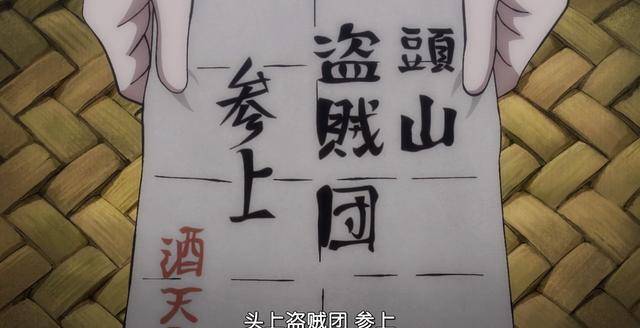 頭山
盗賊团
参上
酒天
头上盗贼团 参上